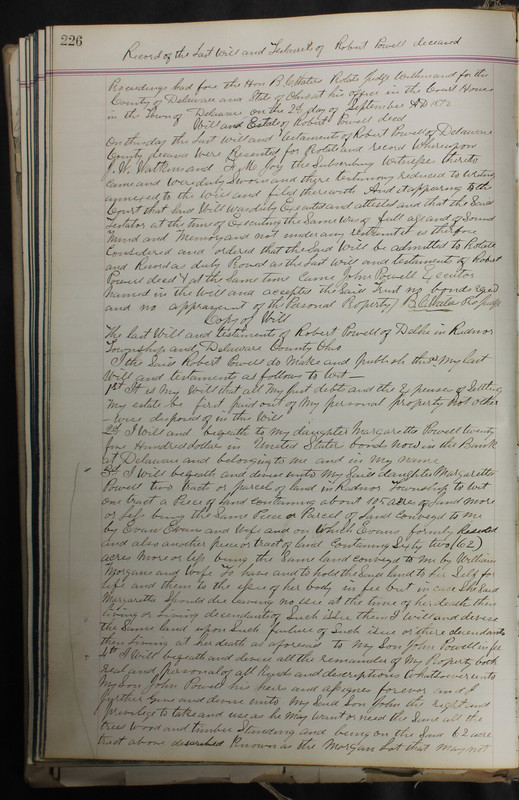 226
Record of the Last Will and Testament of Robert Powell deceased
Proceedings had fore the Hon B. C. Waters Probate Judge within and for the
County of Delaware and State of Ohio at his office in the Court House
in the Town of Delaware on the 2d day of September AD 187
Will and Estate of Robert Powell decd
On this day the last will and testament of Robert Powell of Delaware
County decead were Presented for Probate and record whereupon
J. W. Watkins and Joy the Subscribing witnesses thereto
came and were duly Sworn and there testimony reduced to writing
annexed to the Will and filed therewith And it appearing to the
Court that said Will was duly Executed and attested and that the said
Testator at the time of Executing the Same was of full age and of Sound
Mind and Memory and not under any restraint it is therefore
Considered and ordered that the Said Will be admitted to Probate
and Record as duly Proved as the last will and testament of Robert
Powell decd & at the same time Came John Powell Executor
Named in the Will and accepts the Said Trust no bonds reqd
and no appraisement of the Personal Property B. C. Waters Pro Judge
Copy of Will
The last Will and testament of Robert Powell of Delhi in Radnor
Township and Delaware County Ohio
I the Said Robert Powell do Make and publish this My last
Will and testament as follows to wit
1st It is my Will that all my just debt and the Expenses of Settling
my estate be first paid out of My personal property not other
wise disposed of in this Will
2d I Will and beqeath to my daughter Margaretta Powell twenty
five Hundred dollars in United States bonds now in the Bank
at Delaware and belonging to me and in My name
3d I Will beqeath and devise unto My Said daughter Margaretta
Powell two tract or parcel of land in Radnor Township to wit
one tract a Piece of Land containing about 105 acres of land more
or less being the Same Piece or Parcel of Land Conveyd to me
by Evan Evans and wife and on which Evans formly Resided
and also another piece or tract of land Containing Sixty two (62)
acres More or less being the Same land conveyd to Me by William
Morgans and Wife To have and to hold the Said land to her Self for
life and them to the issue of her body in fee but in case She Said
Margaretta Should die leaving no issue at the time of her death then
living or living decendants of Such issue them I will and devise
the Same land upon Such failure of Such issue or there decendants
then living at her death as aforesaid to My Son John Powell in fee
4th I Will beqeath and devise all the remainder of My Property both
real and personal of all kinds and descriptions to whatsoever unto
My Son John Powell his heirs and assignes forever and I
further Give and devise unto My Said Son John the right and
privilege to take and use as he May want or need the Same all the
trees Wood and timber Standing and being on the Said 62 acre
tract above described Known as the Morgan Lot that may not